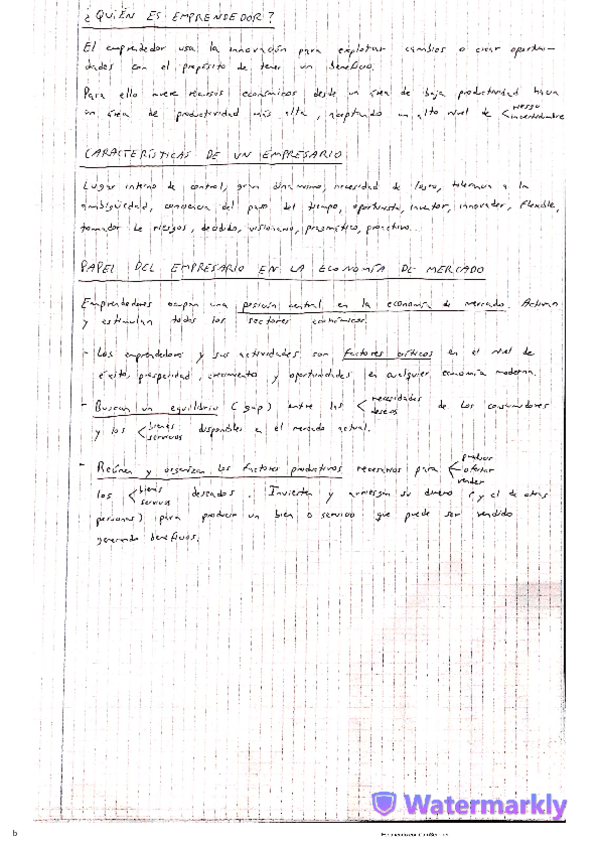 ¿QUIÉN ES EMPRENDEDOR?
El emprendedor usa la innovación para explotar cambios o crear oportuni-
dades con el propósito de tener un beneficio.
Para ello mueve recursos económicos desde un área de baja productividad hacia
un área de productividad más alta, aceptando un alto nivel de < riesgo
incertidumbre
CARACTERÍSTICAS DE UN EMPRESARIO
Lugar interno de control, gran dinamismo, necesidad de logro, tolerancia a la
ambigüedad, conciencia del paso del tiempo, oportunista, inventor, innovador, flexible,
tomador de riesgos, decidido, visionario, pragmático, proactivo...
PAPEL DEL EMPRESARIO EN LA ECONOMÍA DE MERCADO
Emprendedores ocupan una posición central en la economía de mercado. Activan
y estimulan todos los sectores económicos.
- Los emprendedores y sus actividades son factores críticos en el nivel de
éxito, prosperidad, crecimiento y oportunidades en cualquier economía moderna.
- Buscan un equilibrio (gap) entre las < necesidades
deseos
de los consumidores
y los < bienes
servicios
disponibles en el mercado actual.
- Reúnen y organizan los factores productivos necesarios para < producir
ofertar
vender
los < bienes
servicios
deseados. Invierten y arriesgan su dinero (y el de otras
personas) para producir un bien o servicio que puede ser vendido
generando beneficios.
Watermarkly